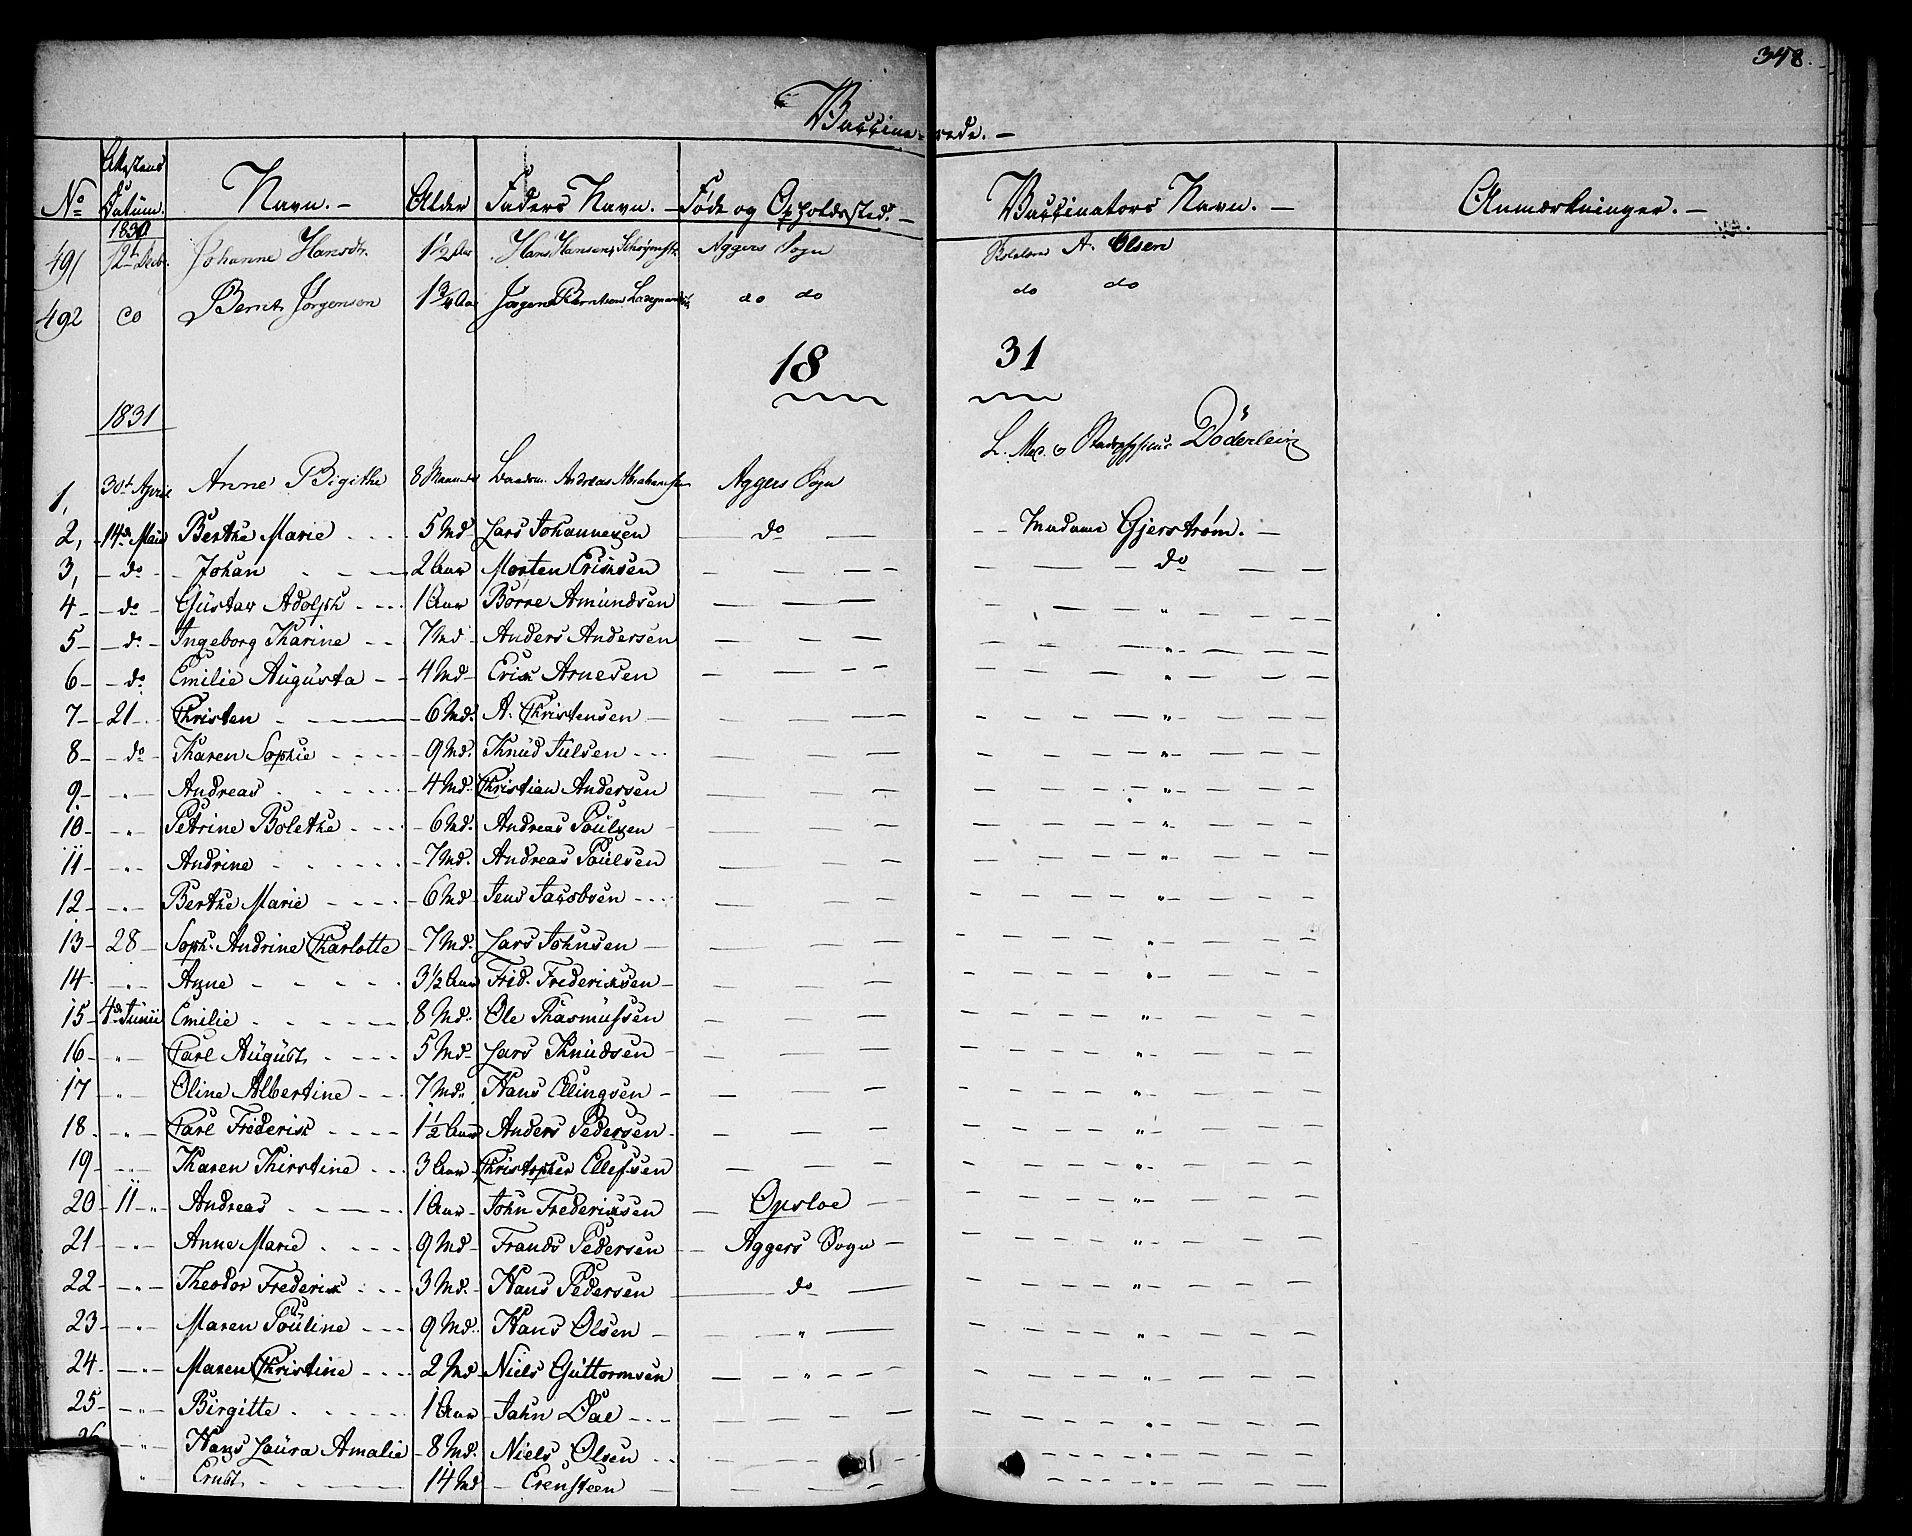 348.
Vaccinerede. —
No Attestens Datum. Navn. — Alder Faders Navn. — Føde og Opholdssted. — Vaccinators Navn. — Anmærkninger. —
1830
491 12t Decbr Johanne Hansdtr. 1½ Aar Hans Hansen Aggers Sogn A. Olsen
492 do Bernt Jørgensen 1¾ Aar Jørgen Berntsen do do do do
18 31
1831
1, 30t April Anne Bigithe 8 Maaneder Andreas Abrahamsen Aggers Sogn L. Med. & Stadsphysicus Döderlein
2, 14de Maii Berthe Marie - - - 5 Md Lars Johannesen — do — - - Madame Gjerstrøm. —
3, - do - - Johan - - - 2 Aar Morten Ericksen — — — — — — do — —
4 - - do - Gustav Adolph - - - 1 Aar Børre Amundsen — — — — — " — — —
5 - - do - Ingeborg Karine - - 7 Md Anders Andersen — — — — — " — — —
6 - - do Emilie Augusta - - 4 Md - Erick Arnesen — — — — — " — — —
7 - - 21 - Christen - — - 6 Md. A. Christensen — — — — — " — — —
8 - - do - Karen Sophie - - - 9 Md. Knud Julsen - - - — — — — " — — —
9 - " - Andreas - - - 4 Md. Christian Andersen — — — — — " — — —
10 - " - Petrine Bolethe - - - 6 Md. Andreas Poulsen — — — — — " — — —
11 - " - Andrine - - - 7 Md. Andreas Poulsen — — — — — " — — —
12 - " - Berthe Marie - - - 6 Md - Jens Jacobsen - - - — — — — " — — —
13 - 28 - Soph. Andrine Charlotte - 7 Md. Lars Johnsen — — — — — " — — —
14 - " - Anne - - - 3½ Aar Frid. Fredericksen — — — — — " — — —
15 - 4de Junii Emilie - - - 8 Md. Ole Rasmussen — — — — — " — — —
16 - " - Carl August - - - 5 Md - Lars Knudsen — — — — — " — — —
17 - " - Oline Albertine - - 7 Md. Hans Ellingsen — — — — — " — — —
18 - " - Carl Frederick - - - 1½ Aar Anders Pedersen — — — — — " — — —
19 - " - Karen Kirstine - - - 3 Aar - Christopher Ellefsen — — — — — " — — —
20 - 11 - " - Andreas - - - 1 Aar - John Fredericksen — Opsloe — — — " — — —
21 - " - Anne Marie - - - 9 Md - Frands Pedersen — Aggers Sogn — — — " — — —
22 - " - Theodor Frederick - - 3 Md. - Hans Pedersen — do — — — " — — —
23 - " - Maren Pouline - - - 9 Md. Hans Olsen — — " — — — " — — —
24 - " - Maren Christine - - - 2 Md - Niels Guttormsen — " — — — " — — —
25 - " - Birgitte - - - 1 Aar - Jahn Dae - - - — — — — " — — —
26 - " - Hans Laura Amalie - 8 Md. Niels Olsen - - — — — — " — — —
" Ernst - - - 14 Md - Erensteen — — — — " — — —